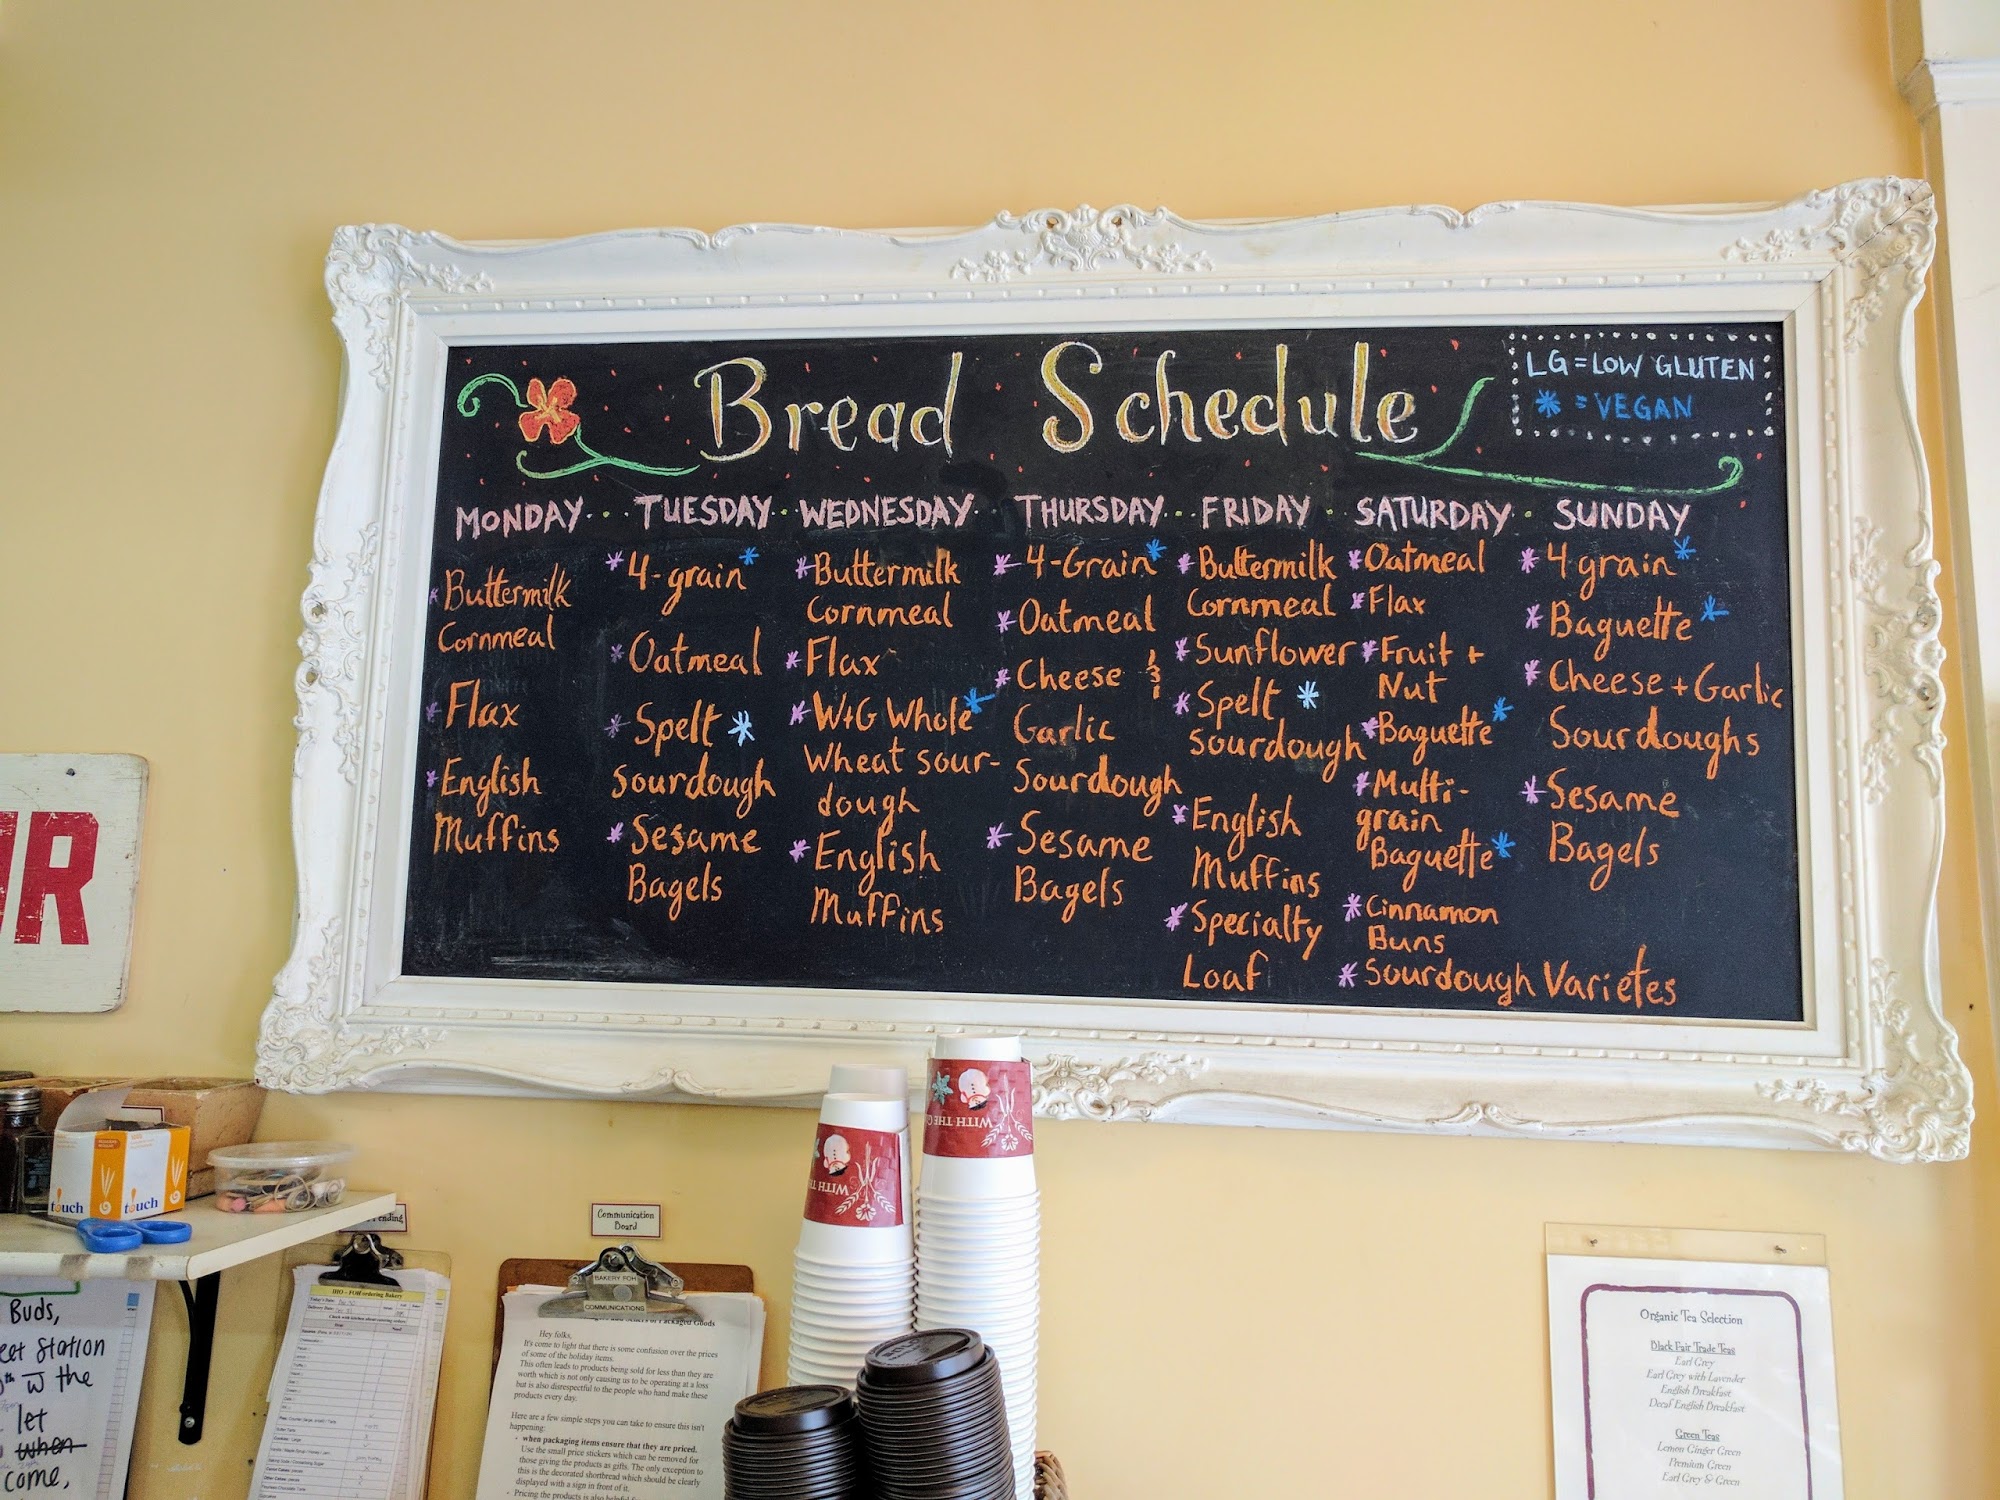 Bread Schedule
LG = LOW GLUTEN
* = VEGAN
MONDAY
* Buttermilk
Cornmeal
* Flax
* English
Muffins
TUESDAY
* 4-grain *
* Oatmeal
* Spelt *
sourdough
* Sesame
Bagels
WEDNESDAY
* Buttermilk
Cornmeal
* Flax
* W+G Whole *
Wheat sour-
dough
* English
Muffins
THURSDAY
* 4-Grain *
* Oatmeal
* Cheese &
Garlic
Sourdough
* Sesame
Bagels
FRIDAY
* Buttermilk
Cornmeal
* Sunflower
* Spelt *
sourdough
* English
Muffins
* Specialty
Loaf
SATURDAY
* Oatmeal
* Flax
* Fruit +
Nut
* Baguette *
* Multi-
grain
Baguette *
* Cinnamon
Buns
* Sourdough Varietes
SUNDAY
* 4 grain *
* Baguette *
* Cheese + Garlic
Sourdoughs
* Sesame
Bagels
touch touch
WITH THE
WITH THE
Buds,
Station
the
let
when
come,
IHO - FOH ordering Bakery
Communication
Board
BAKERY FOH
COMMUNICATIONS
of Packaged Goods
Hey folks,
It's come to light that there is some confusion over the prices
of some of the holiday items.
This often leads to products being sold for less than they are
worth which is not only causing us to be operating at a loss
but is also disrespectful to the people who hand make these
products every day.
Here are a few simple steps you can take to ensure this isn't
happening:
- when packaging items ensure that they are priced.
Use the small price stickers which can be removed for
those giving the products as gifts. The only exception to
this is the decorated shortbread which should be clearly
displayed with a sign in front of it.
- Pricing the products is also helpful
Organic Tea Selection
Black Fair Trade Teas
Earl Grey
Earl Grey with Lavender
English Breakfast
Decaf English Breakfast
Green Teas
Lemon Ginger Green
Premium Green
Earl Grey & Green